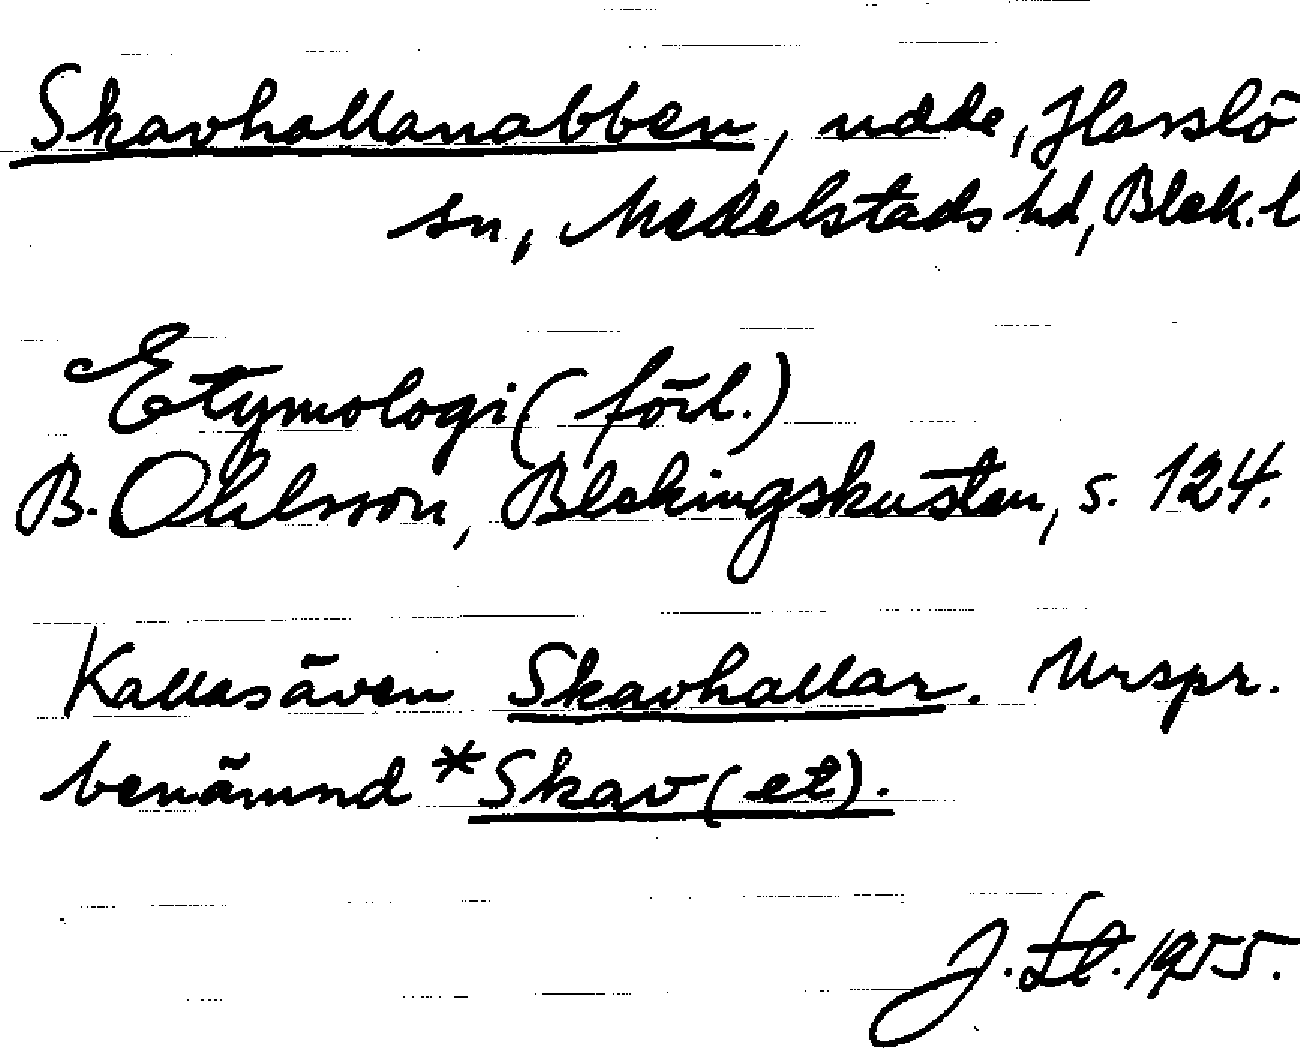 Skavhallanabben, udde, Hasslö
sn, Medelstads hd, Blek. l
Etymologi (förl.)
B. Ohlsson, Blekingskusten, s. 124.
Kallas även Skavhallar. Urspr.
benämnd *Skav(et).
J. 1955.